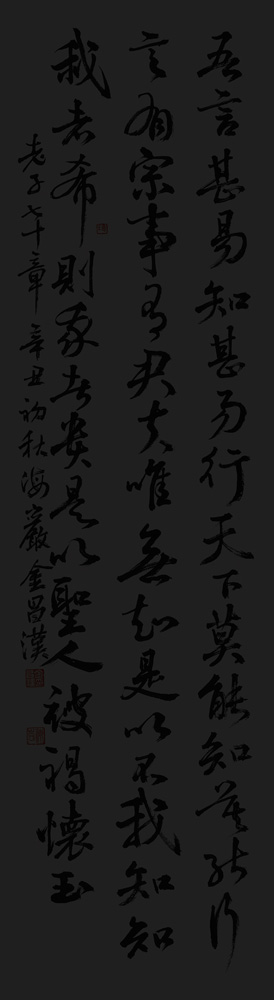 吾言甚易知甚易行天下莫能知莫能行
言有宗事有君夫唯無知是以不我知知
我者希則我者貴是以聖人被褐懷玉
老子七十章辛丑初秋海巖金昌漢